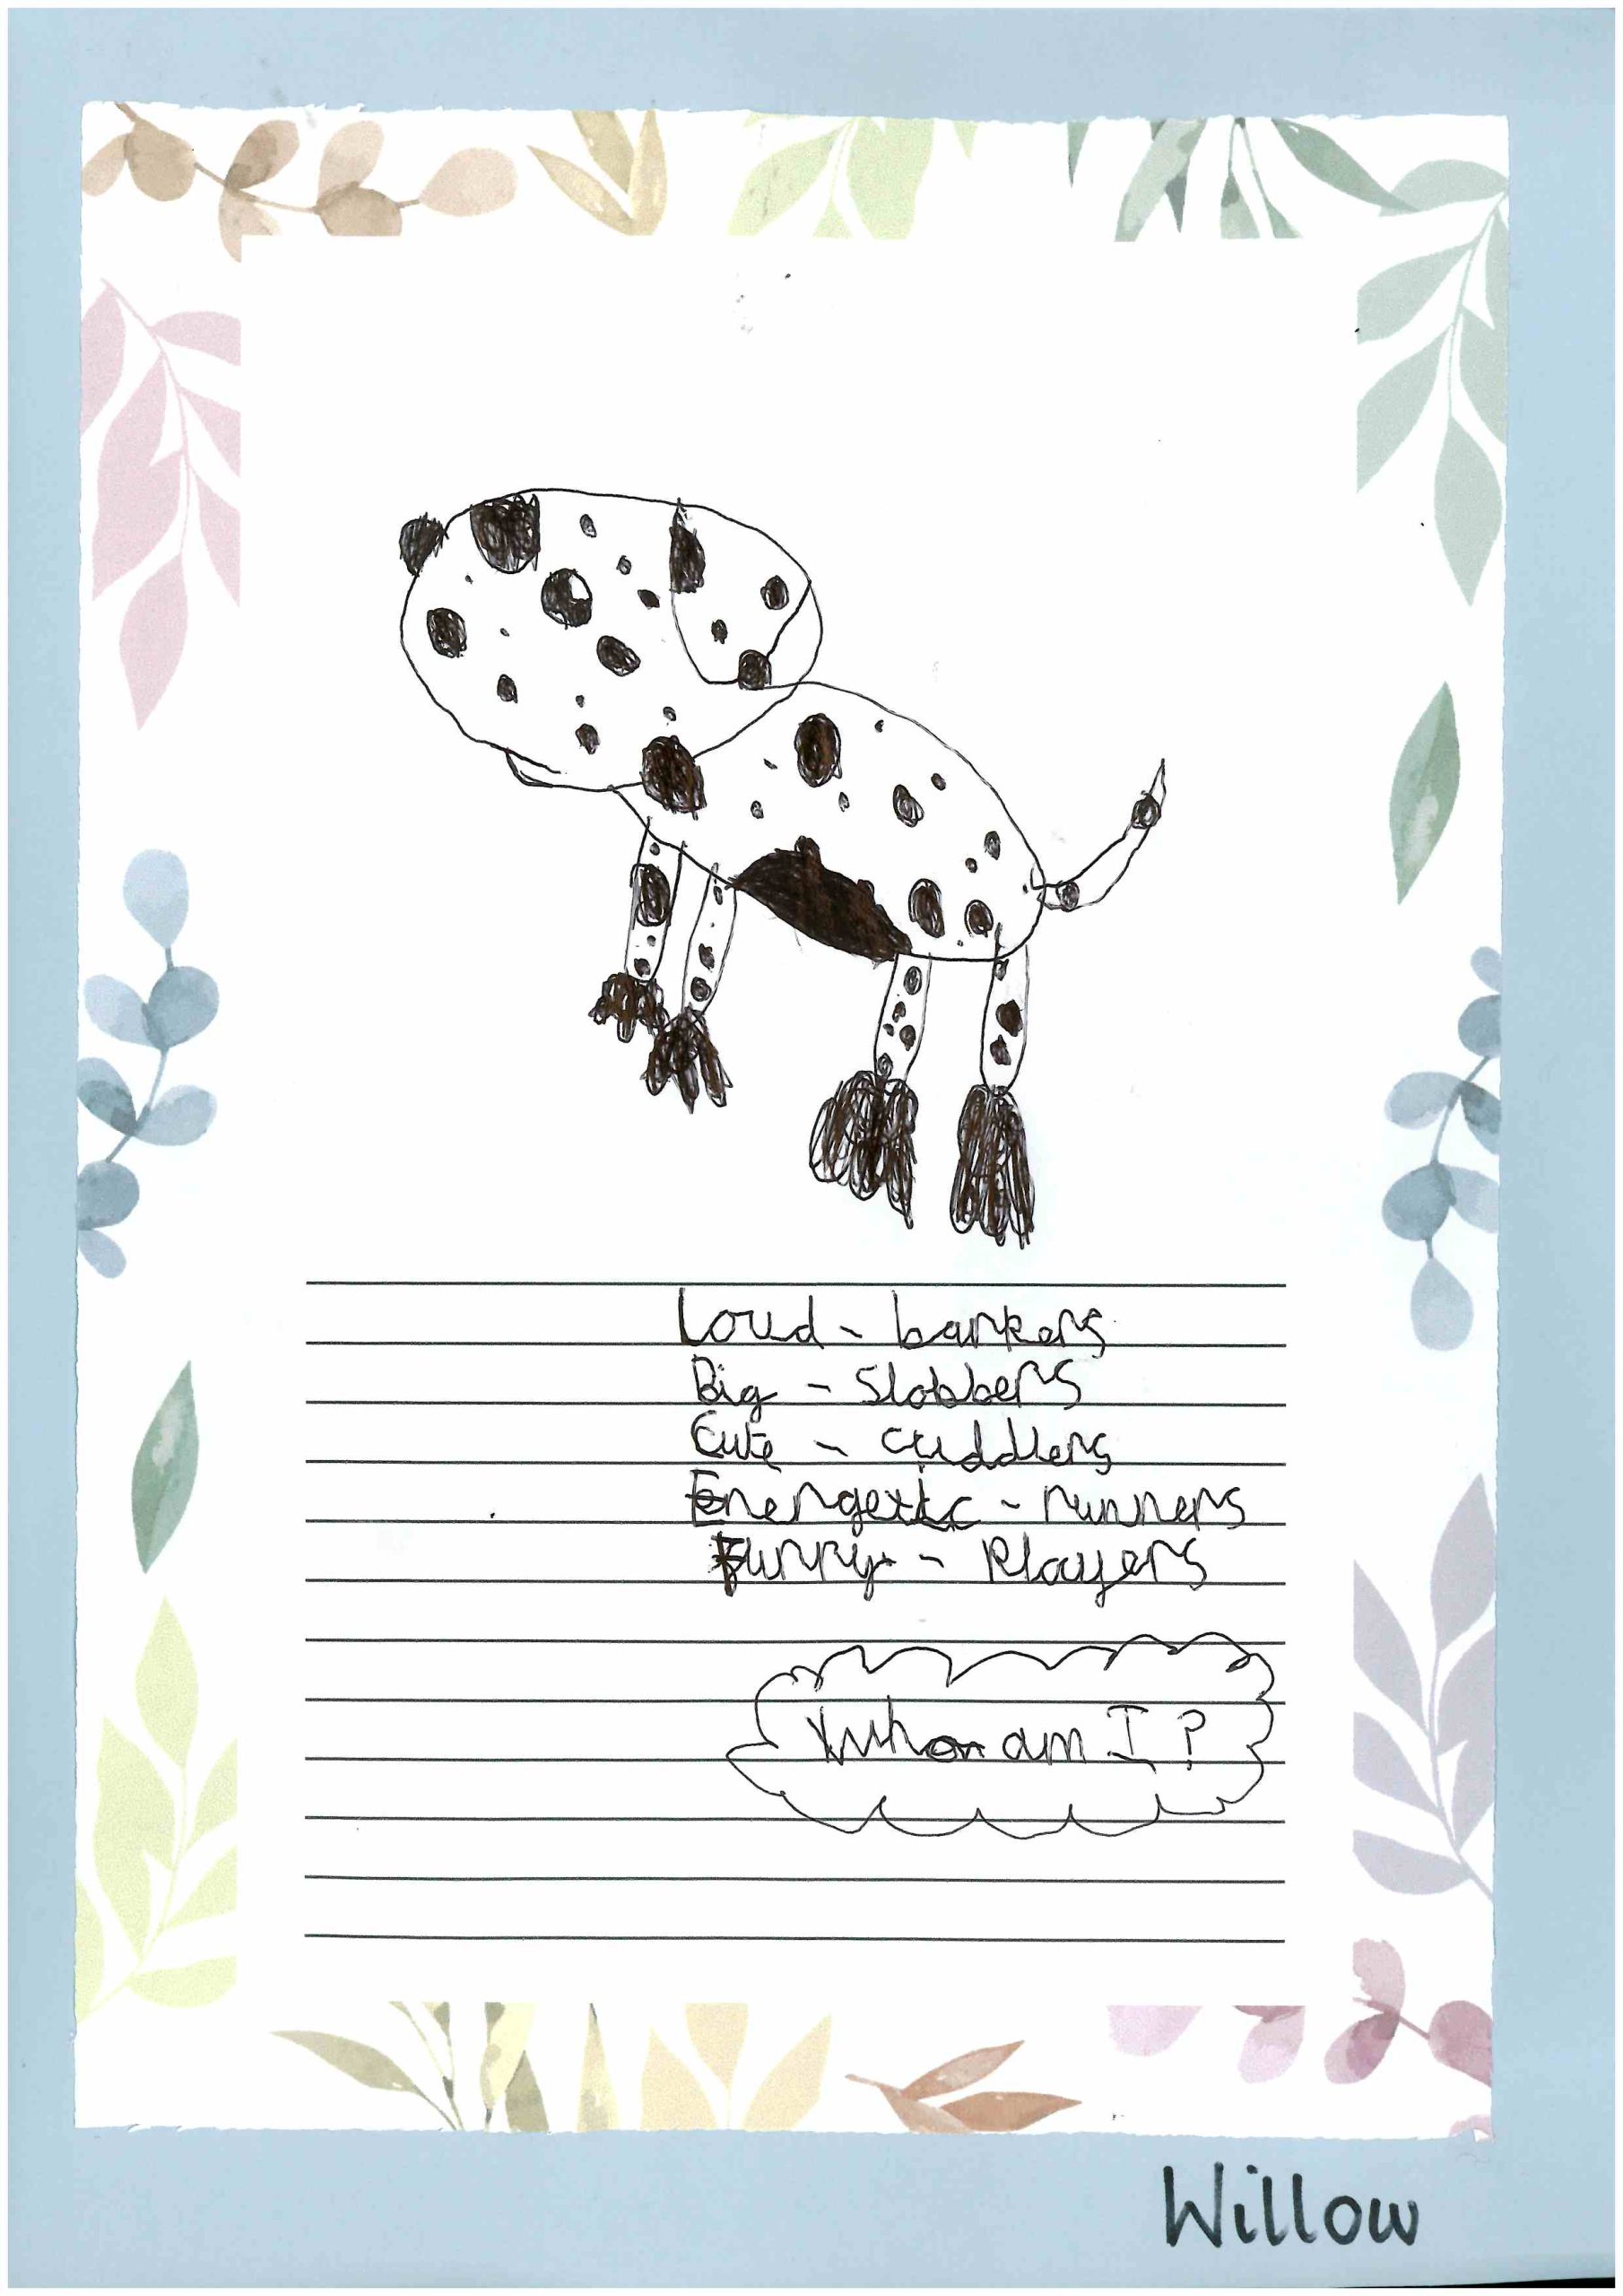 Loud - barkers
Big - Slobbers
Cute - cuddlers
Energetic - runners
Furry - Players
Who am I?
Willow